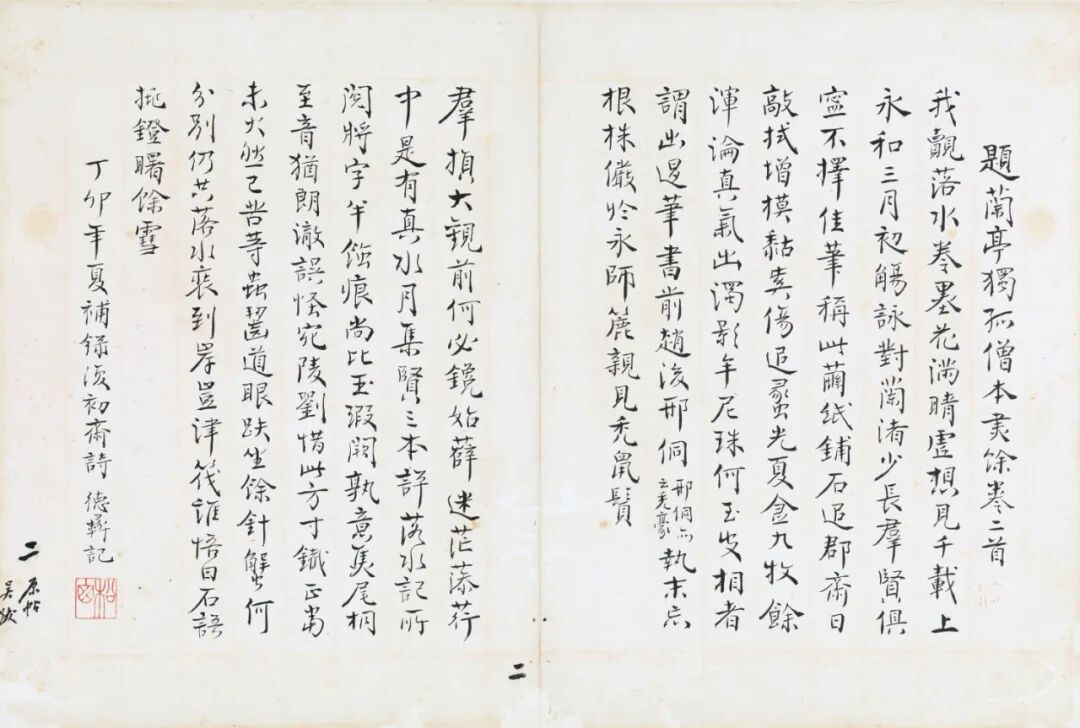 題蘭亭獨孤僧本㶳餘卷二首
我觀落水卷墨花滿晴虛想見千載上
永和三月初觴詠對蘭渚少長羣賢俱
寧不擇佳筆稱此繭紙鋪石追郡齋日
敲拭增摸黏㶳傷追蠡光夏金九牧餘
渾論真氣出濁影牟尼珠何玉叟相者
謂出退筆書前趙後邢侗邢侗亦云禿豪執末忘
根株儼於永師簏親見禿鼠鬚
二
羣損大觀前何必鑱始薛迷茫漆荇
中是有真水月集賢三本詳落水記所
閱將字半蝕痕尚比玉瑕闕孰意焦尾桐
至音猶朗澈誤怪宛陵劉惜此方寸鐵正當
未火然已昔等蟲齧道眼趺坐餘針蟹何
分別仍共落水裝到岸豈津筏誰悟白石語
挑鐙曙餘雪
丁卯年夏補錄復初齋詩 德彝記
二
原帖
吳跋